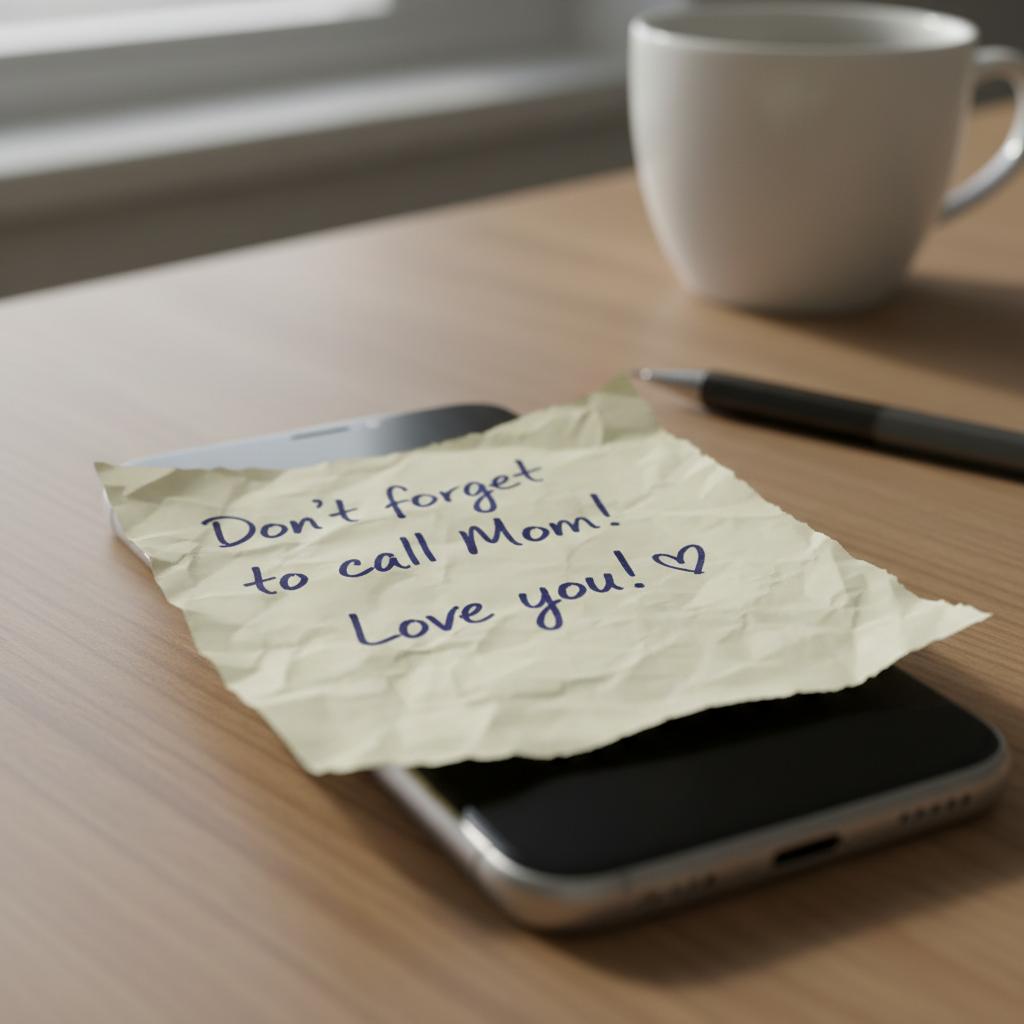 Don't forget
to call Mom!
Love you! ♡